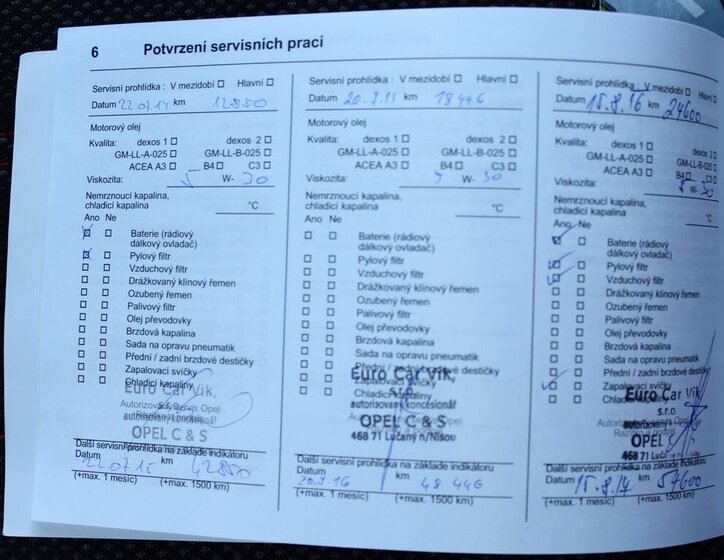 6 Potvrzení servisních prací
Servisní prohlídka : V mezidobí Hlavní
Datum 22.07.14 km 12850
Motorový olej
Kvalita: dexos 1 dexos 2
GM-LL-A-025 GM-LL-B-025
ACEA A3 B4 C3
Viskozita: 5 W- 30
Nemrznoucí kapalina,
chladicí kapalina °C
Ano Ne
Baterie (rádiový
dálkový ovladač)
Pylový filtr
Vzduchový filtr
Drážkovaný klínový řemen
Ozubený řemen
Palivový filtr
Olej převodovky
Brzdová kapalina
Sada na opravu pneumatik
Přední / zadní brzdové destičky
Zapalovací svíčky
Chladicí kapaliny
Euro Car Vik,
s.r.o.
Autorizovaný Servis Opel
autorizovaný koncesionář
OPEL C & S
Další servisní prohlídka na základe indikátoru
Datum km
22.07.15 42850
(+max. 1 mesíc) (+max. 1500 km)
Servisní prohlídka : V mezidobí Hlavní
Datum 20.9.15 km 18446
Motorový olej
Kvalita: dexos 1 dexos 2
GM-LL-A-025 GM-LL-B-025
ACEA A3 B4 C3
Viskozita: 5 W- 30
Nemrznoucí kapalina,
chladicí kapalina °C
Ano Ne
Baterie (rádiový
dálkový ovladač)
Pylový filtr
Vzduchový filtr
Drážkovaný klínový řemen
Ozubený řemen
Palivový filtr
Olej převodovky
Brzdová kapalina
Sada na opravu pneumatik
Přední / zadní brzdové destičky
Zapalovací svíčky
Chladicí kapaliny
Euro Car Vik,
s.r.o.
autorizovaný koncesionář
OPEL C & S
468 71 Lučany n/Nisou
Další servisní prohlídka na základe indikátoru
Datum km
20.9.16 48446
(+max. 1 mesíc) (+max. 1500 km)
Servisní prohlídka : V mezidobí Hlavní
Datum 15.8.16 km 24600
Motorový olej
Kvalita: dexos 1 dexos 2
GM-LL-A-025 GM-LL-B-025
ACEA A3 B4 C3
Viskozita: 5 W- 30
Nemrznoucí kapalina,
chladicí kapalina °C
Ano Ne
Baterie (rádiový
dálkový ovladač)
Pylový filtr
Vzduchový filtr
Drážkovaný klínový řemen
Ozubený řemen
Palivový filtr
Olej převodovky
Brzdová kapalina
Sada na opravu pneumatik
Přední / zadní brzdové destičky
Zapalovací svíčky
Euro Car Vik,
s.r.o.
Autorizovaný Servis Opel
autorizovaný koncesionář
OPEL
468 71
Další servisní prohlídka na základe indikátoru
Datum km
57600
(+max. 1 mesíc) (+max. 1500 km)